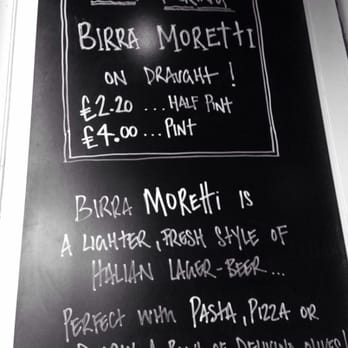 BIRRA MORETTI
ON DRAUGHT!
£2.20 ... HALF PINT
£4.00 ... PINT
BIRRA MORETTI IS
A LIGHTER, FRESH STYLE OF
ITALIAN LAGER-BEER...
PERFECT WITH PASTA, PIZZA OR